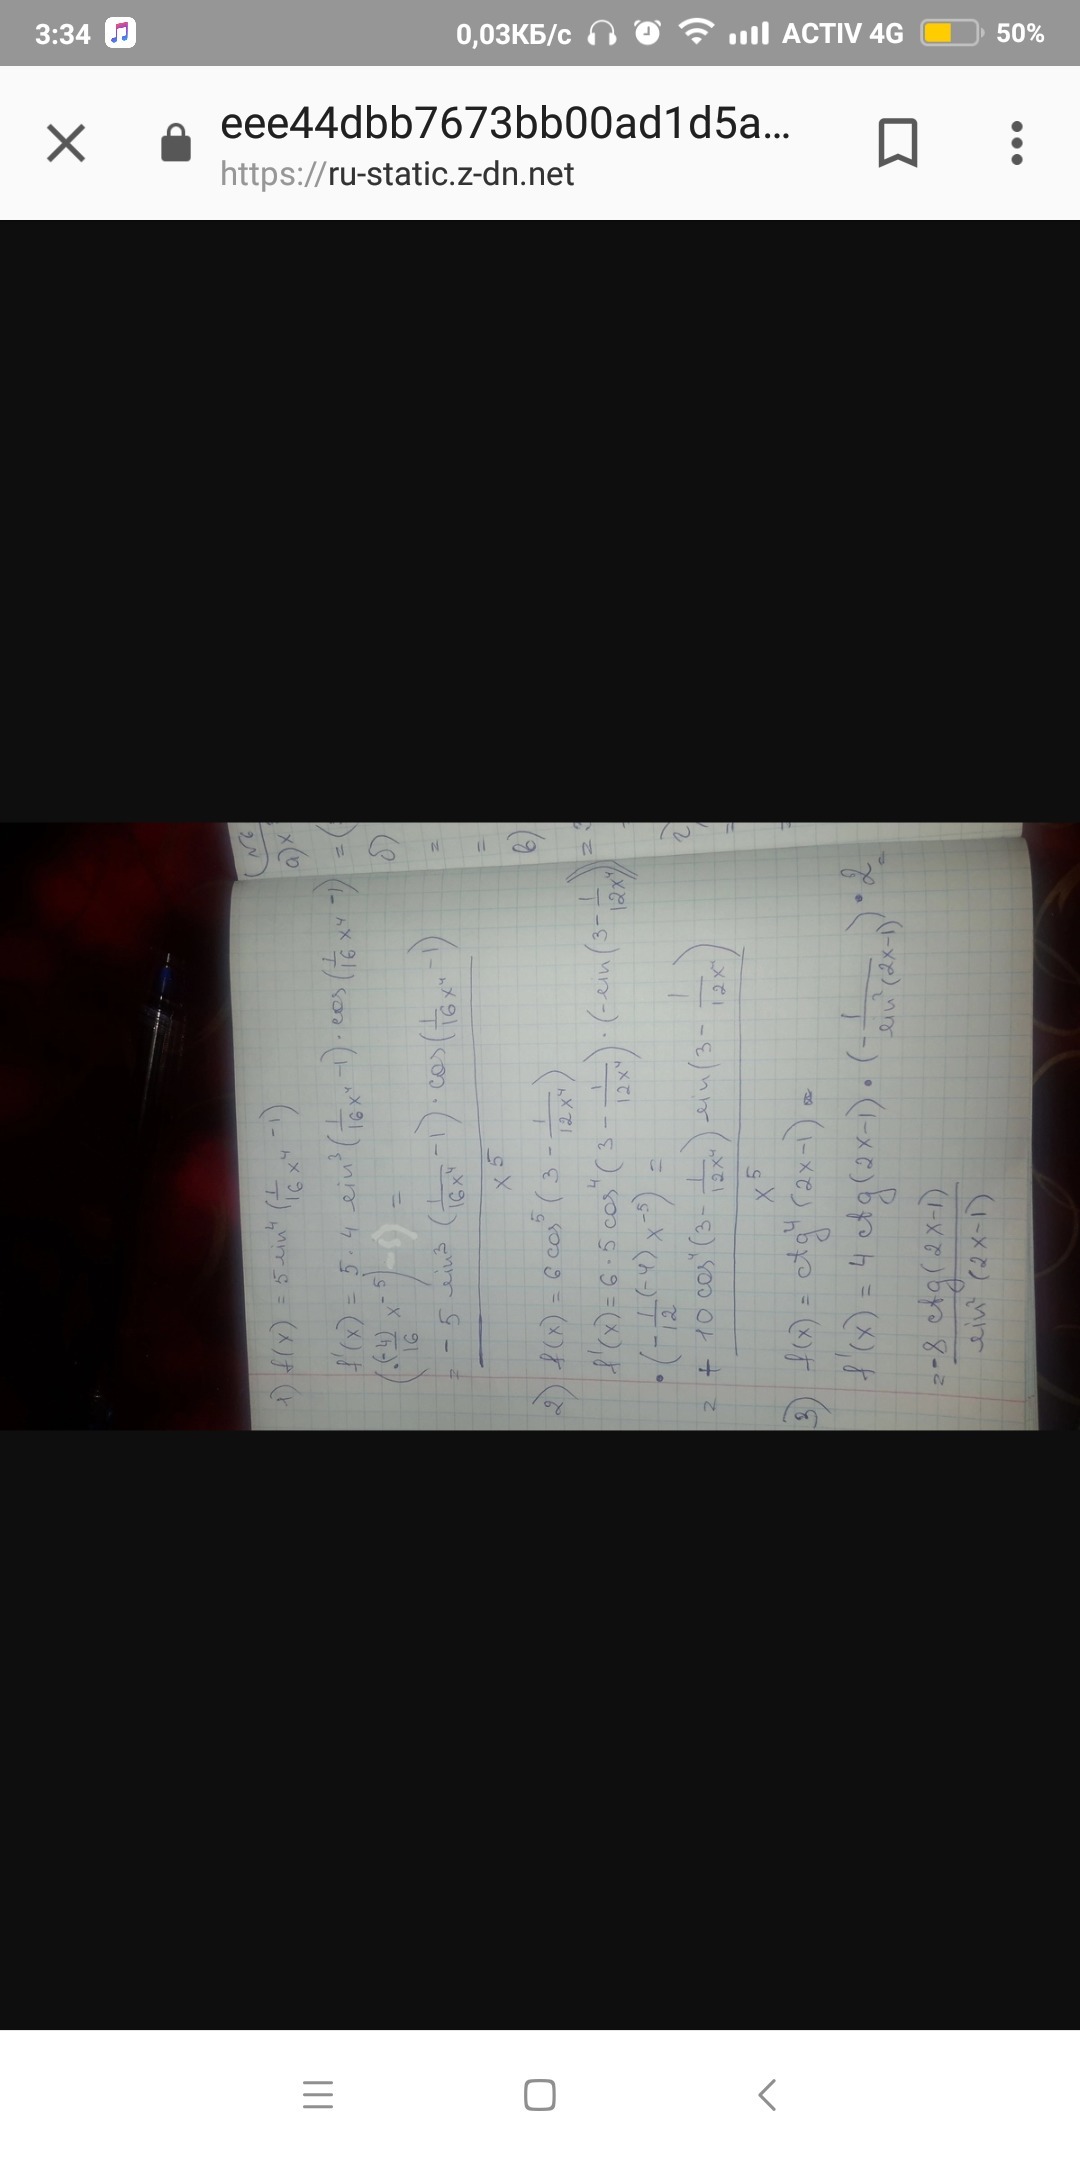 3:34 0,03КБ/с ACTIV 4G 50%
eee44dbb7673bb00ad1d5a...
https://ru-static.z-dn.net
1) f(x) = 5 sin⁴ (1/16 x⁴ - 1)
f'(x) = 5 · 4 sin³ (1/16x⁴ - 1) · cos (1/16 x⁴ - 1)
(· (-4)/16 x⁻⁵) =
= - 5 sin³ (1/16x⁴ - 1) · cos (1/16x⁴ - 1)
x⁵
2) f(x) = 6 cos⁵ (3 - 1/12x⁴)
f'(x) = 6 · 5 cos⁴ (3 - 1/12x⁴) · (- sin (3 - 1/12x⁴))
· (- 1/12 (-4) x⁻⁵) =
= + 10 cos⁴ (3 - 1/12x⁴) sin (3 - 1/12x⁴)
x⁵
3) f(x) = ctg⁴ (2x-1) =
f'(x) = 4 ctg (2x-1) · (- 1/sin² (2x-1)) · 2 =
= -8 ctg (2x-1)
sin² (2x-1)
№6
а) x
= (
б)
=
=
в)
= 3
г)
=
=